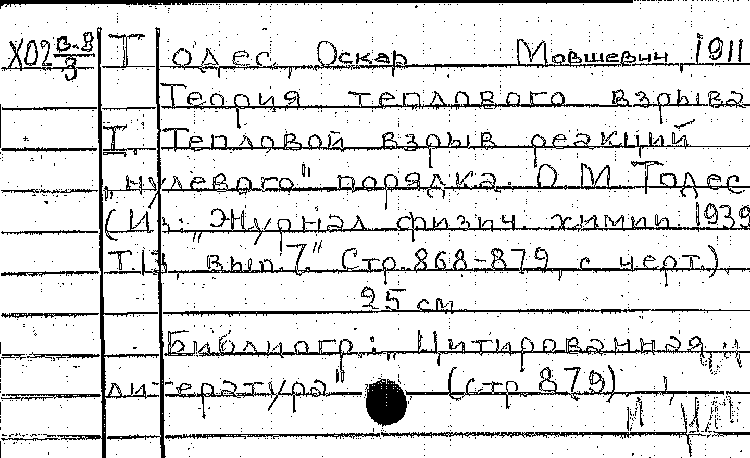 X02 в.8/3 Тодес, Оскар Мовшевич, 1911
Теория теплового взрыва
I. Тепловой взрыв реакций
„нулевого" порядка. О.М. Тодес
(Из: „Журнал физич. химии. 1939
Т.13, вып. 7." Стр. 868-879, с черт.)
25 см
Библиогр.: „Цитированная
литература" (стр 879)